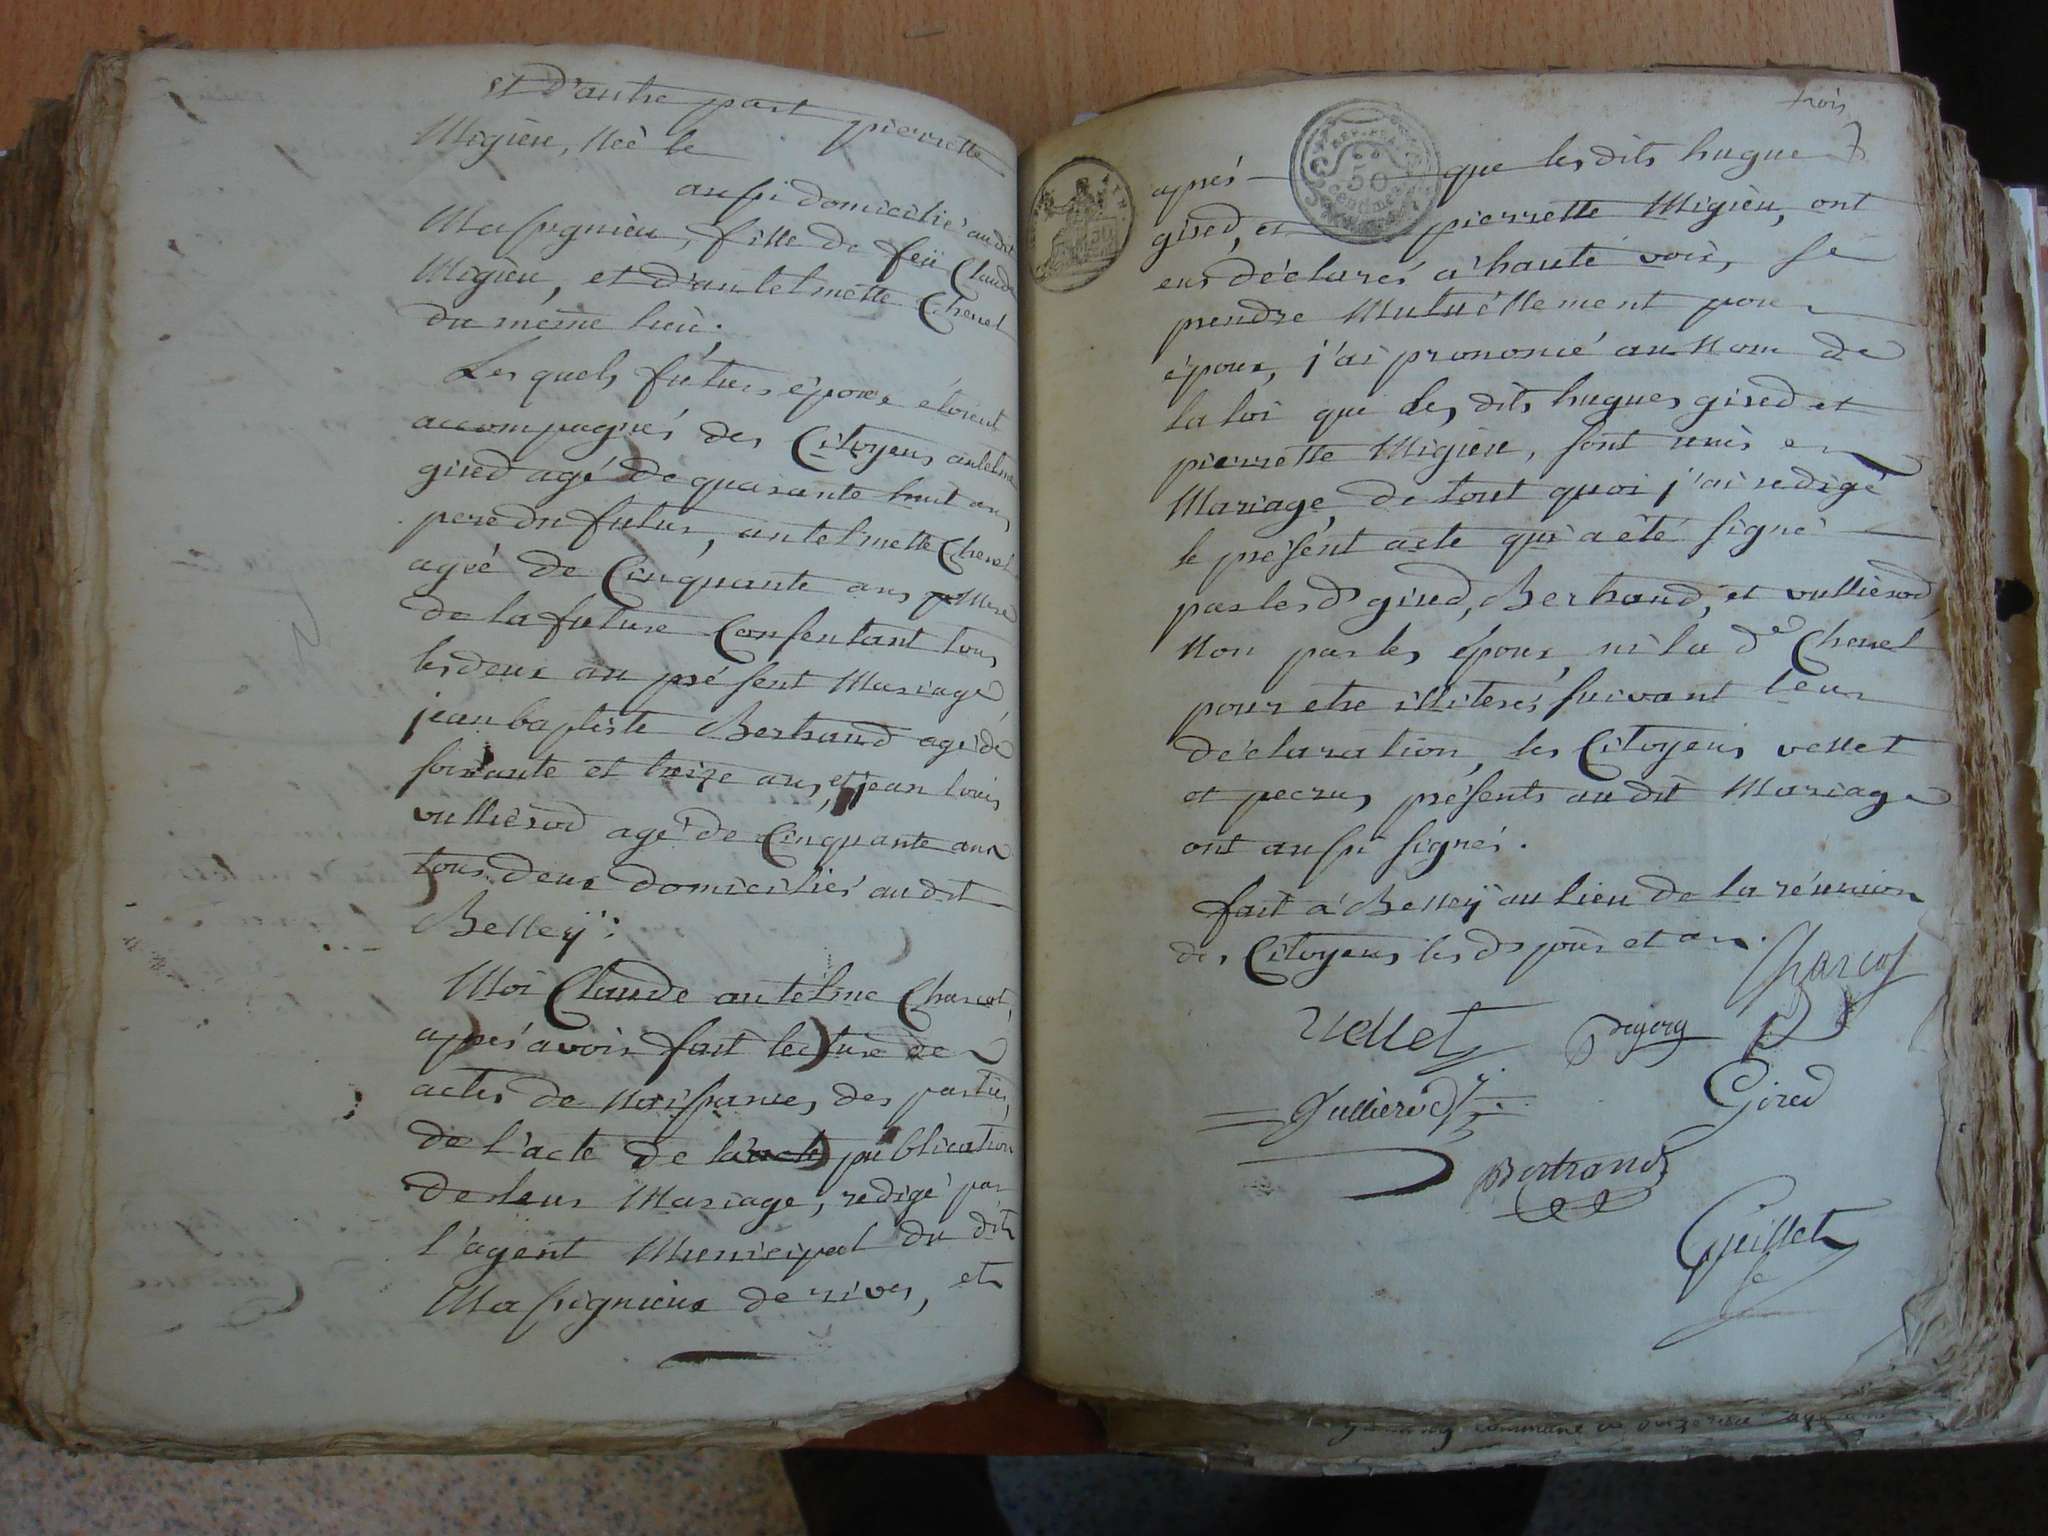 et d'autre part pierrette
Migieu, Née le
aussi domicilié audit
Massignieu, fille de feü Claude
Migieu, et d'antelmette Chenel
du même lieu;
Lesquels futurs époux étoient
accompagnés des Citoyens antelme
gired agé de quarante huit ans
pere du futur, antelmette Chenel
agée de Cinquante ans Mere
de la future Consentant tous
les deux au présent Mariage,
jean baptiste Bertrand agé de
soixante et treize ans, et jean louis
vulliérod agé de Cinquante ans
tous deux domiciliés audit
Belley:
Moi Claude antelme Charcot,
après avoir fait lecture de
actes de Naissances des parties,
de l'acte de la acte publication
de leur Mariage, redigé par
l'agent Municipal du dit
Massignieux de rives, et
trois
après que les dits hugue
gired, et pierrette Migieu, ont
eus déclarés a' haute voix, se
prendre Mutuellement pour
époux, j'ai prononcé au Nom de
la loi que les dits hugues gired et
pierrette Migieu, sont unis en
Mariage, de tout quoi j'ai redigé
le présent acte qui a été signé
par les ds gired, Bertrand, et vulliérod,
Non par les époux, ni la de Chenel
pour etre illiterés suivant leur
déclaration, les Citoyens vellet
et présents audit Mariage
ont aussi signés.
fait a' Belleÿ au lieu de la réunion
des Citoyens les ds jour et an.
Charcot
Vellet
Gired
Vullierod
Bertrand
Guillet
50